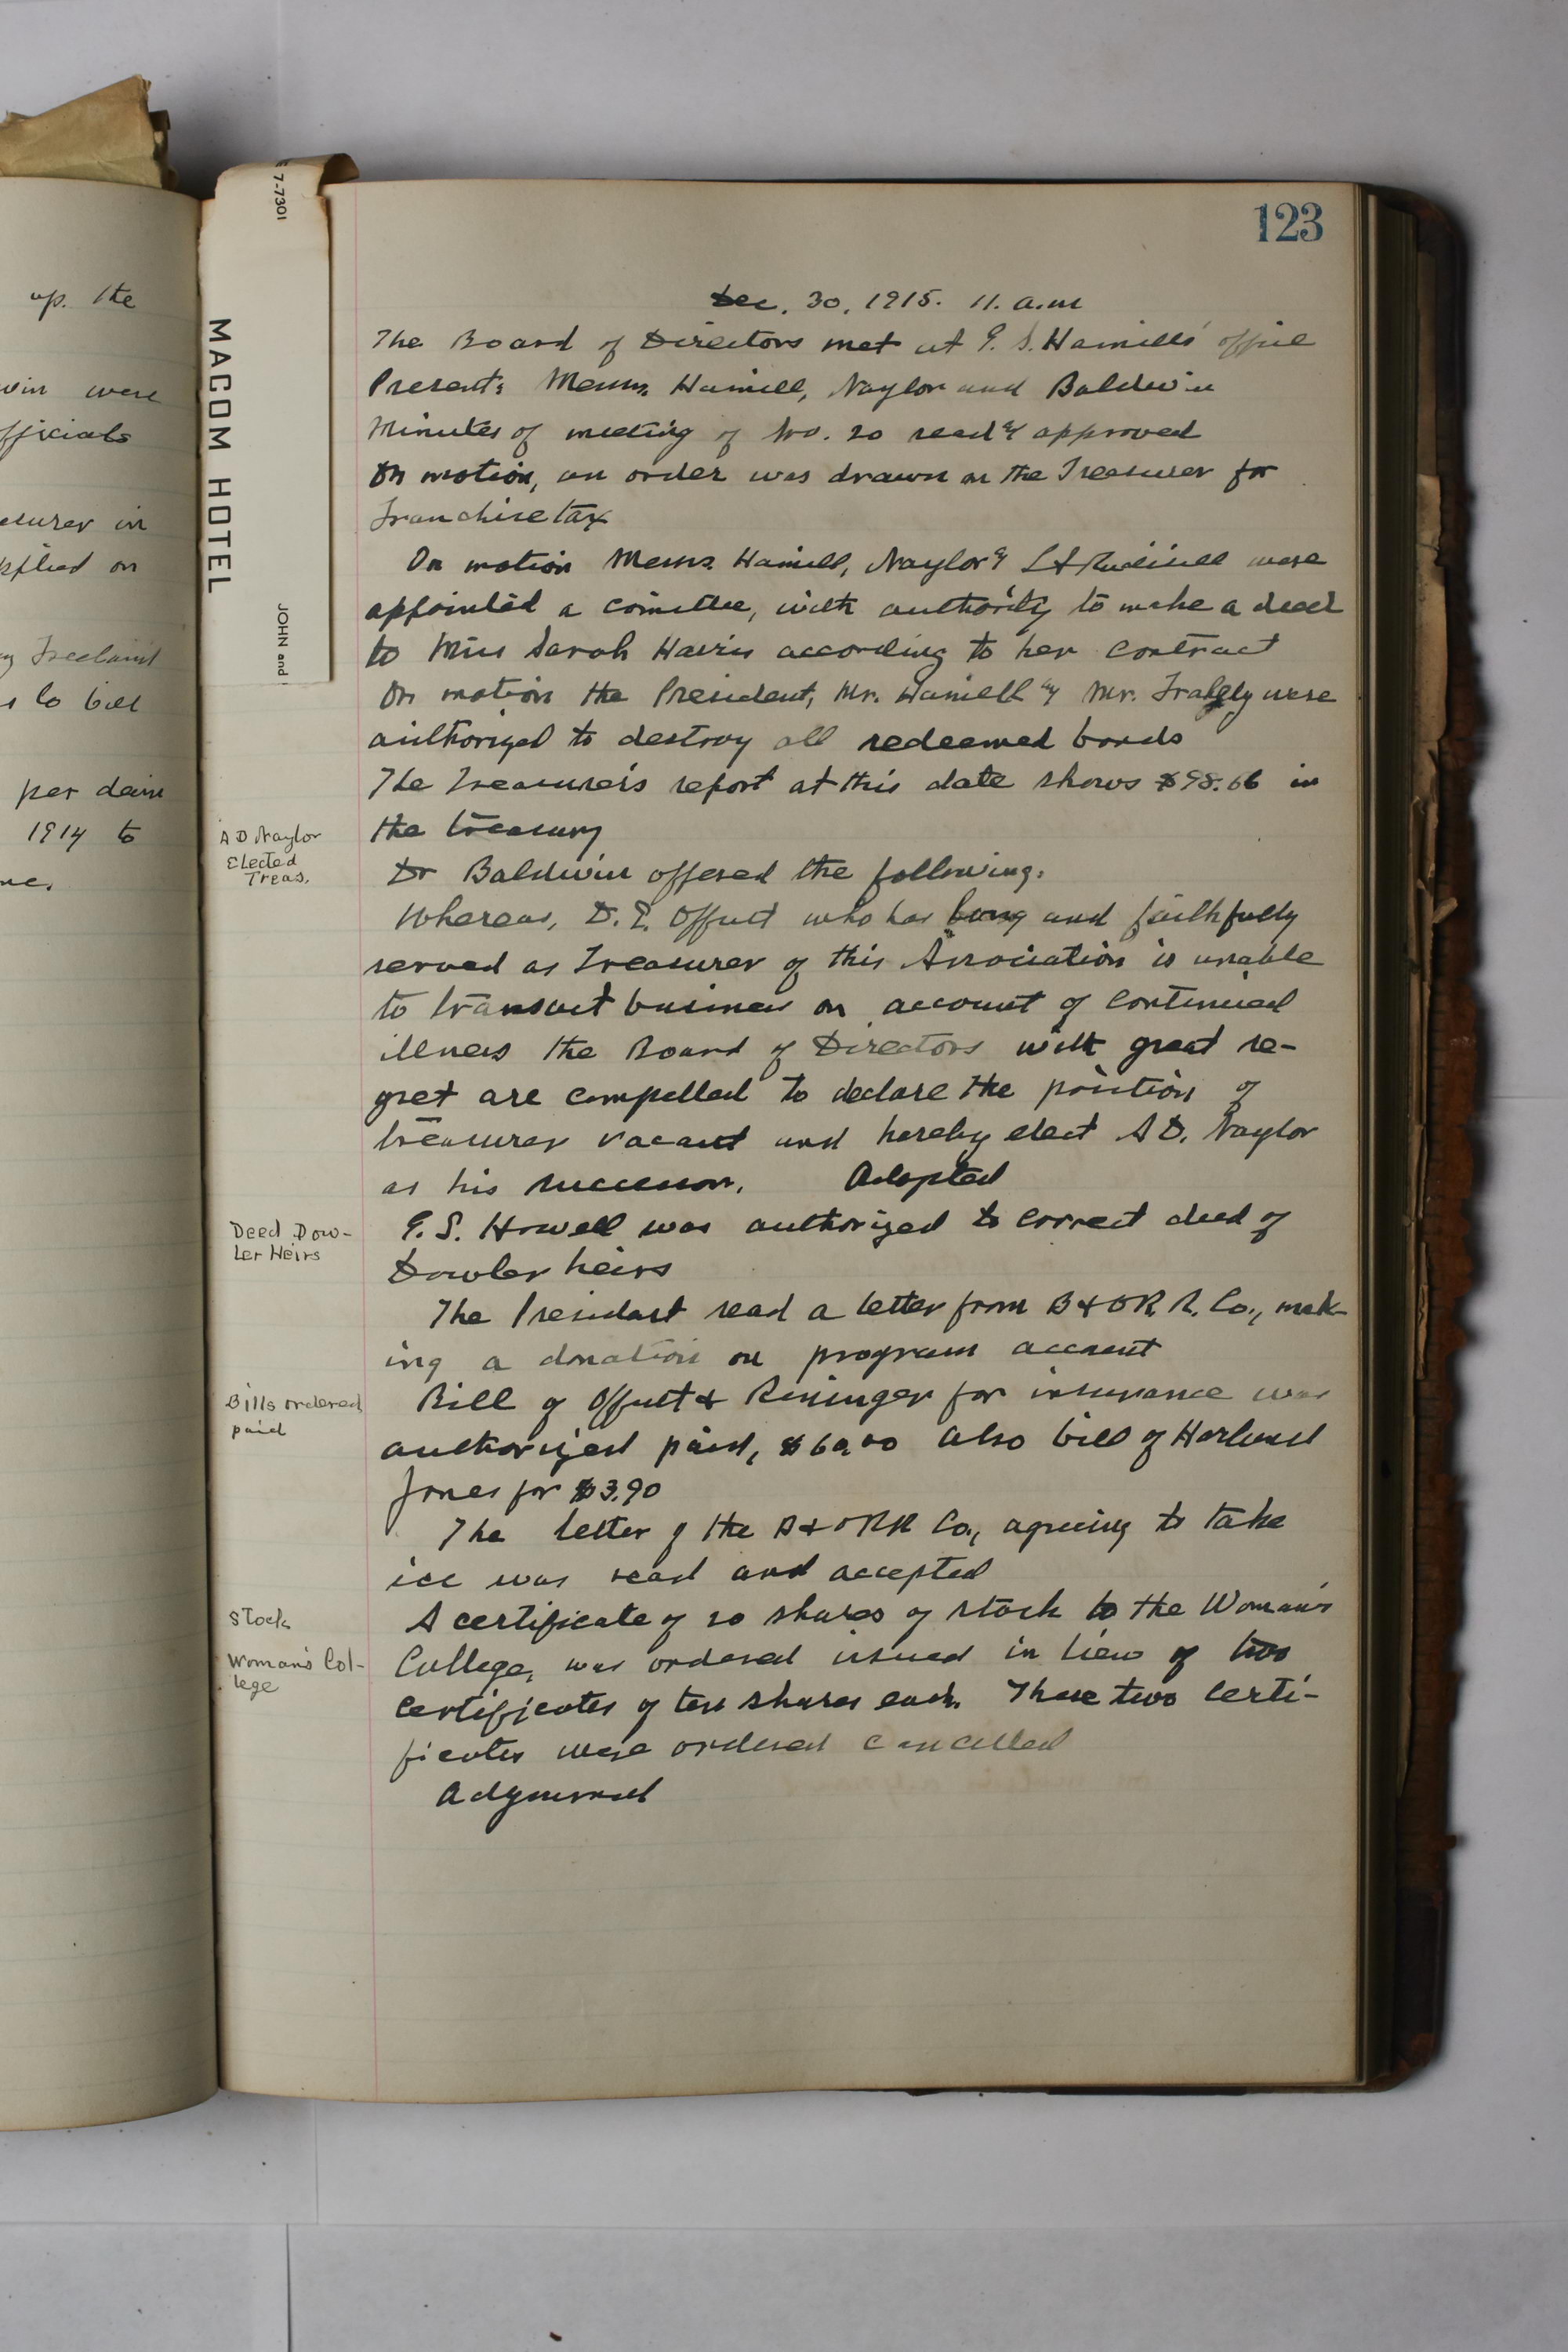 up. the
win were
fficials
easurer in
on
Freeland
s to bill
per deim
1914 to
7-7301
MACOM HOTEL
JOHN and
123
Dec. 30, 1915. 11. a.m
The Board of Directors met at G. S. Hamill's office
Present: Messrs. Hamill, Naylor and Baldwin
Minutes of meeting of 20 read & approved
On motion, an order was drawn on the Treasurer for
Franchise tax
On motion Messrs. Hamill, Naylor & were
appointed a comittee, with authority to make a deed
to Miss Sarah Harris according to her contract
On motion the President, Mr. Hamill & Mr. were
authorized to destroy all redeemed bonds
The Treasurer's report at this date shows $98.66 in
the treasury
A D Naylor
Elected
Treas.
Dr Baldwin offered the following:
Whereas, D. E. Offutt who has long and faithfully
served as Treasurer of this Association is unable
to transact business on account of continued
illness the Board of Directors with great re-
gret are compelled to declare the position of
treasurer vacant and hereby elect A D. Naylor
as his successor. Adopted
Deed Dow-
ler Heirs
E. S. Howell was authorized to correct deed of
Dowler heirs
The President read a letter from B & O R. R. Co., mak-
ing a donation on program account
Bills ordered
paid
Bill of Offutt & Reninger for insurance was
authorized paid, $60.00 also bill of Harland
Jones for $3.90
The letter of the B & O RR Co., agreeing to take
ice was read and accepted
Stock
Woman's Col-
lege
A certificate of 20 shares of stock to the Woman's
College, was ordered issued in lieu of two
certificates of ten shares each. These two certi-
ficates were ordered cancelled
Adjourned